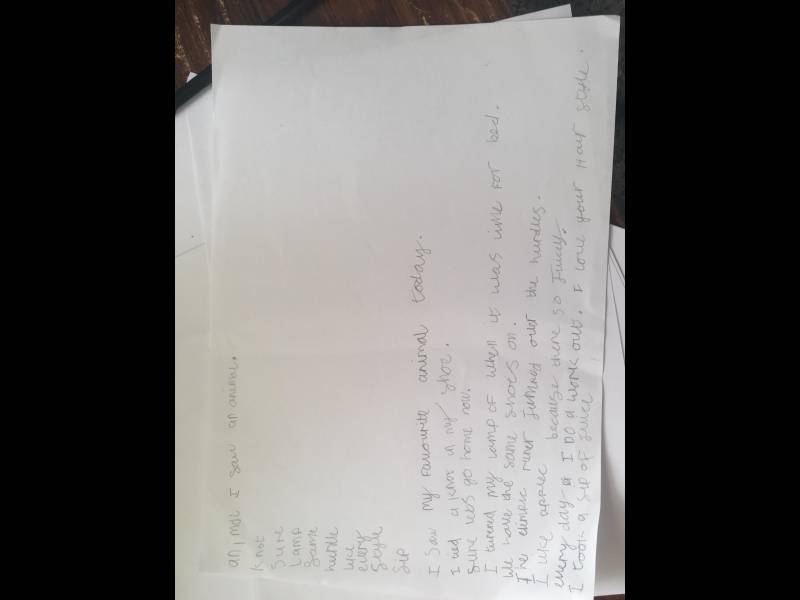 animal I saw an animal.
Knot
Sure
Lamp
Same
hurdle
like
every
Style
Sip
I saw my favourite animal today.
I tied a knot in my shoe.
Sure lets go home now.
I turned my lamp of when it was time for bed.
We have the same shoes on.
The olimpic runer jumped over the hurdles.
I like apples because there so juicy.
every day I Do a work out. I love your Hair style.
I took a sip of juice